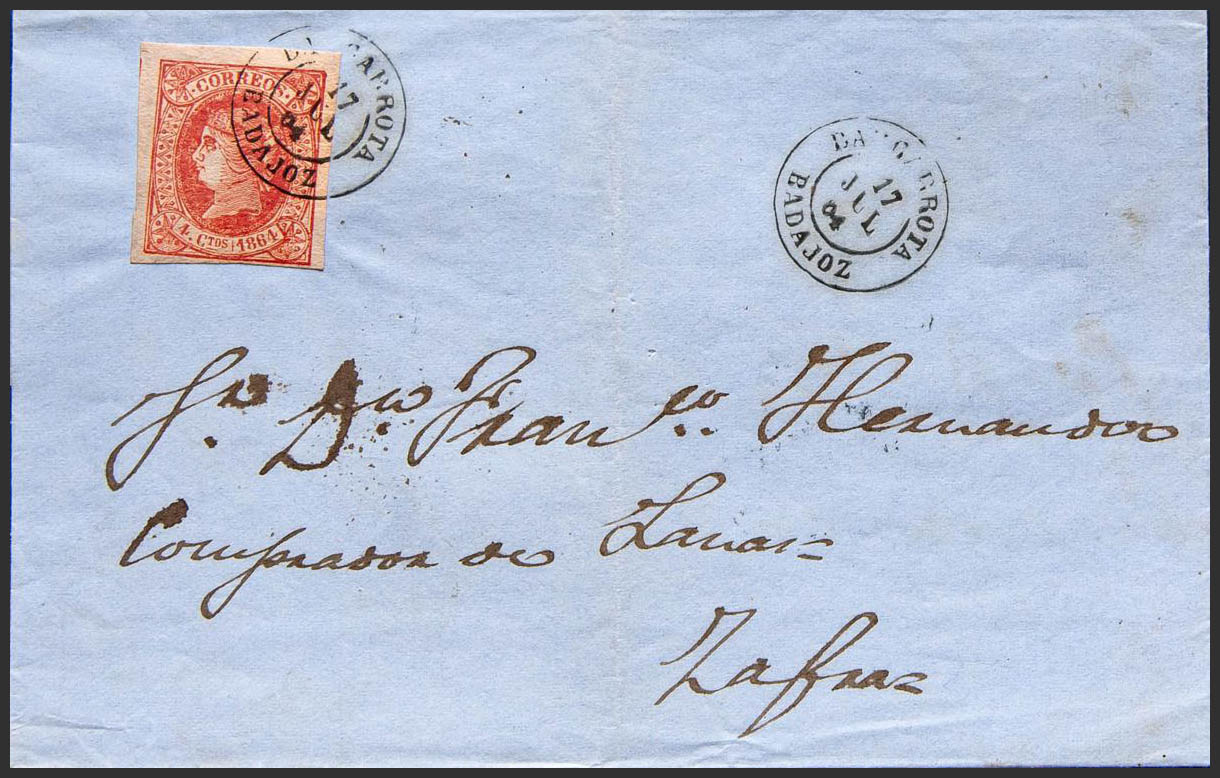 CORREOS.
4. CTOS 1864
BARCARROTA
17
JUL
64
BADAJOZ
BARCARROTA
17
JUL
64
BADAJOZ
Sr. Dn. Franco. Hernandez
Comprador de Lanas
Zafra